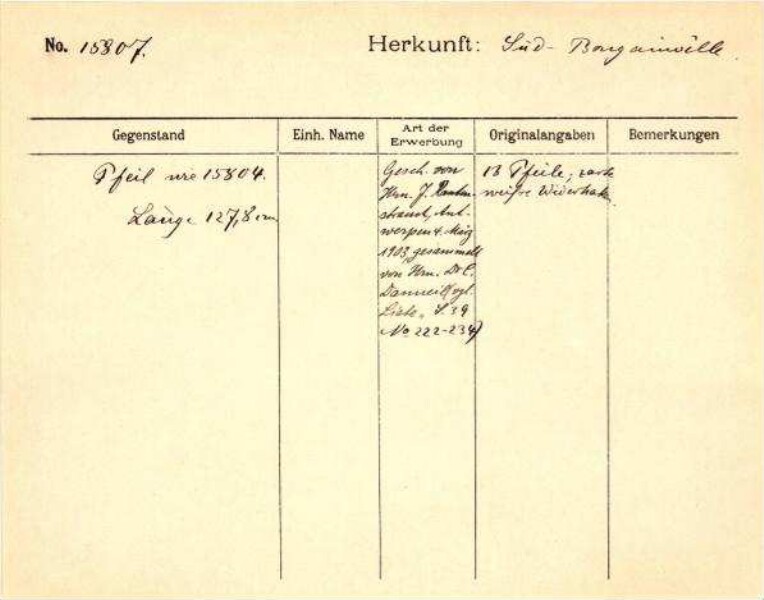 No. 15807.
Herkunft: Süd-Bougainville.
Gegenstand
Einh. Name
Art der
Erwerbung
Originalangaben
Bemerkungen
Pfeil wie 15804.
Länge 127,8 cm
Gesch. von
Hrn. J.
Ant-
werpen 4. März
1903, gesammelt
von Hrn. Dr C.
Danneil (vgl.
Liste, S. 39
No 222-234)
13 Pfeile; zarte
weisse Widerhaken